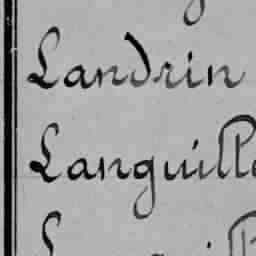 Landrin
Languille